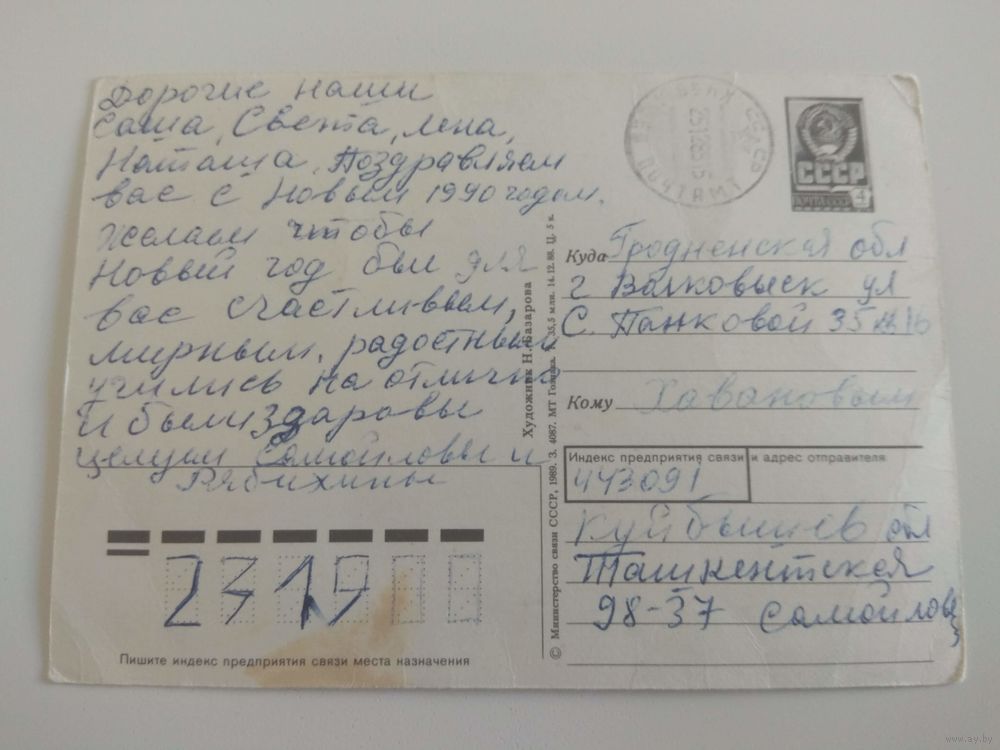 Дорогие наши
Саша, Света, Лена,
Наташа. Поздравляем
вас с Новым 1990 годом.
Желаем чтобы
Новый год был для
вас счастливым,
мирным, радостным
учились на отлично
и были здаровы
целуем Самойловы и
Рябихины
2319
Пишите индекс предприятия связи места назначения
Художник Н. Базарова
© Министерство связи СССР, 1989. З. 4087. МТ Гознака. 35,5 млн. 14.12.88. Ц. 5 к.
ПОЧТАМТ
СССР
ПОЧТА СССР
4
Куда Гродненская обл
г Волковыск ул
С. Панковой 35 кв 16
Кому Хавановым
Индекс предприятия связи и адрес отправителя
443091
Куйбышев обл
Ташкентская
98-37 Самойловы
www.ay.by